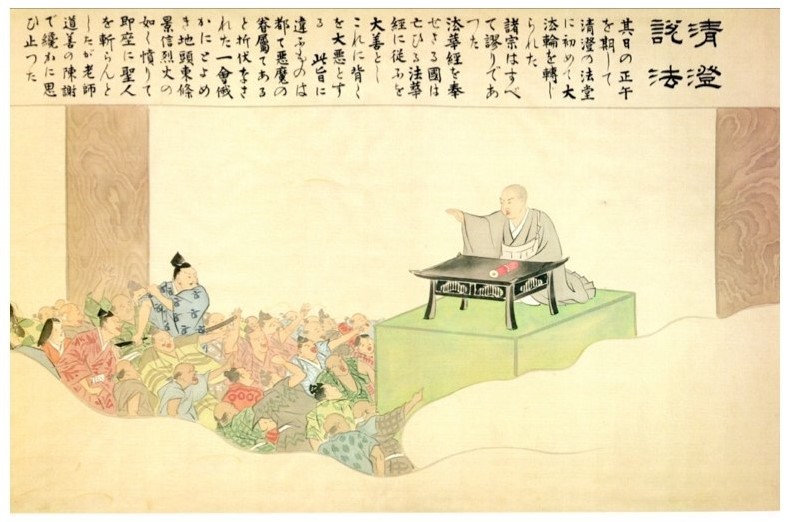 清澄
説法
其日の正午
を期して
清澄の法堂
に初めて大
法輪を轉じ
られた
諸宗はすべ
て謬りであ
つた
法華經を奉
せざる國は
亡びる法華
經に從ふを
大善とし
これに背く
を大悪とす
る 此旨に
違ふものは
都て悪魔の
眷屬である
と折伏をさ
れた一會俄
かにどよめ
き地頭東條
景信烈火の
如く憤りて
即座に聖人
を斬らんと
したが老師
道善の陳謝
で纔かに思
ひ止つた